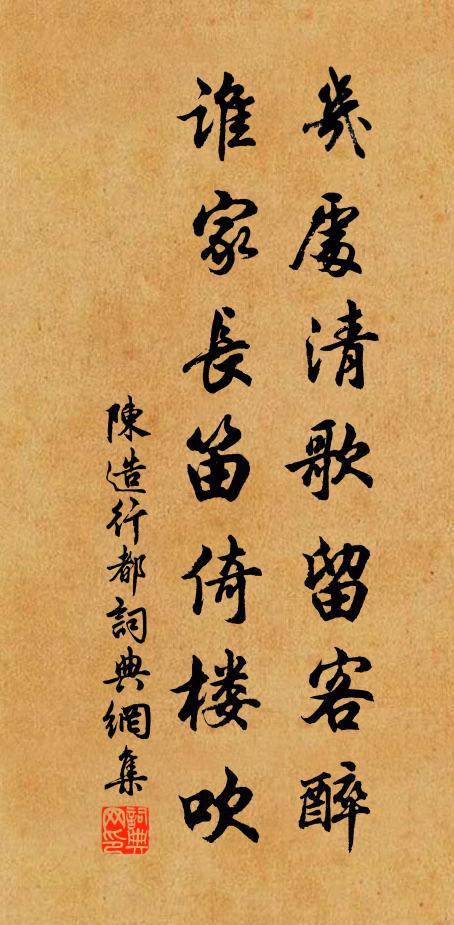 幾處清歌留客醉
誰家長笛倚楼吹
陳造行都詞典網集
詞典網印